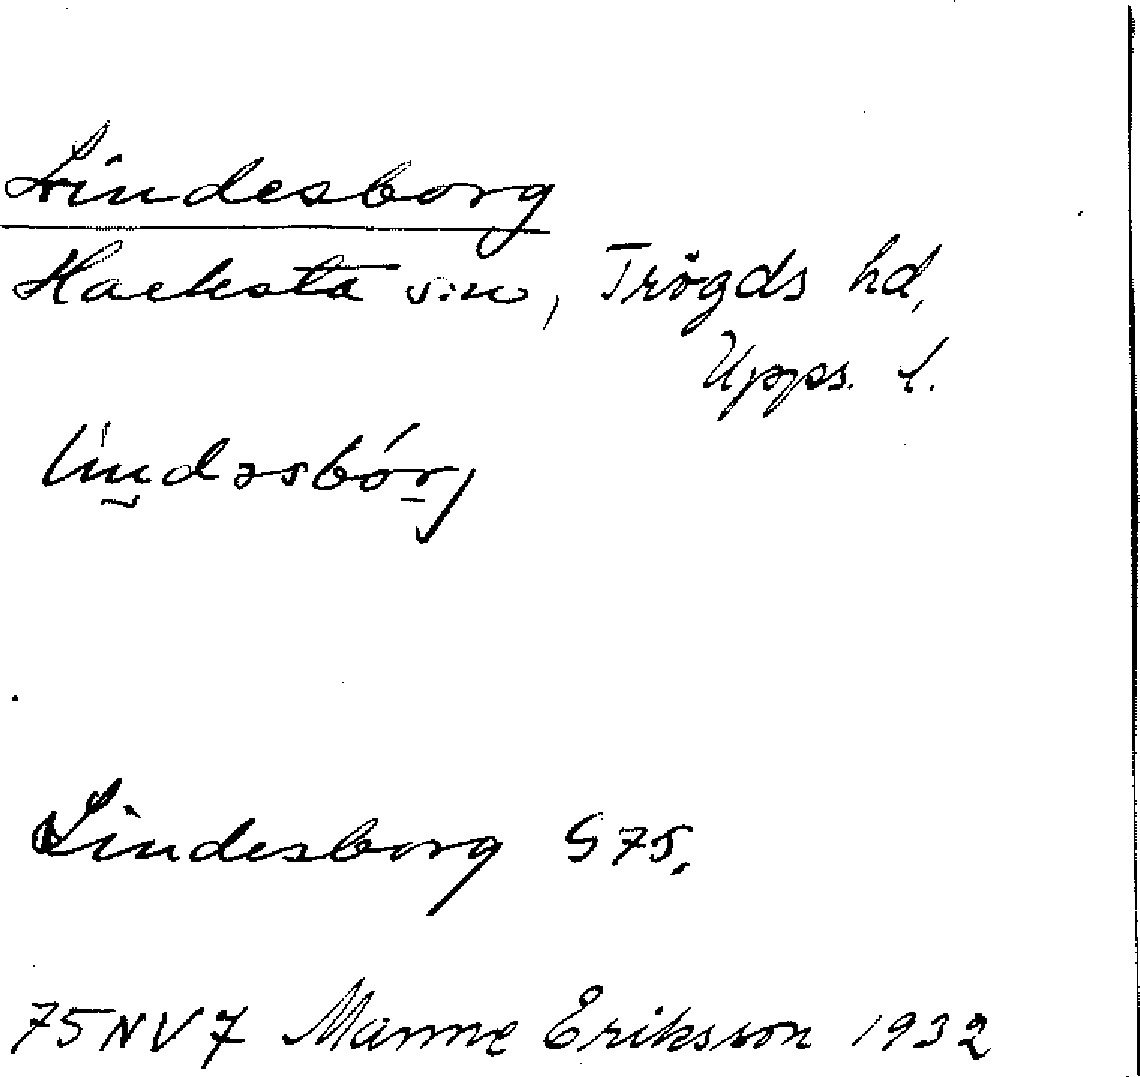 Lindesborg
Hacksta s:n, Trögds hd,
Upps. l.
lìndəsbórj
Lindesborg G 75.
75NV7 Manne Eriksson 1932